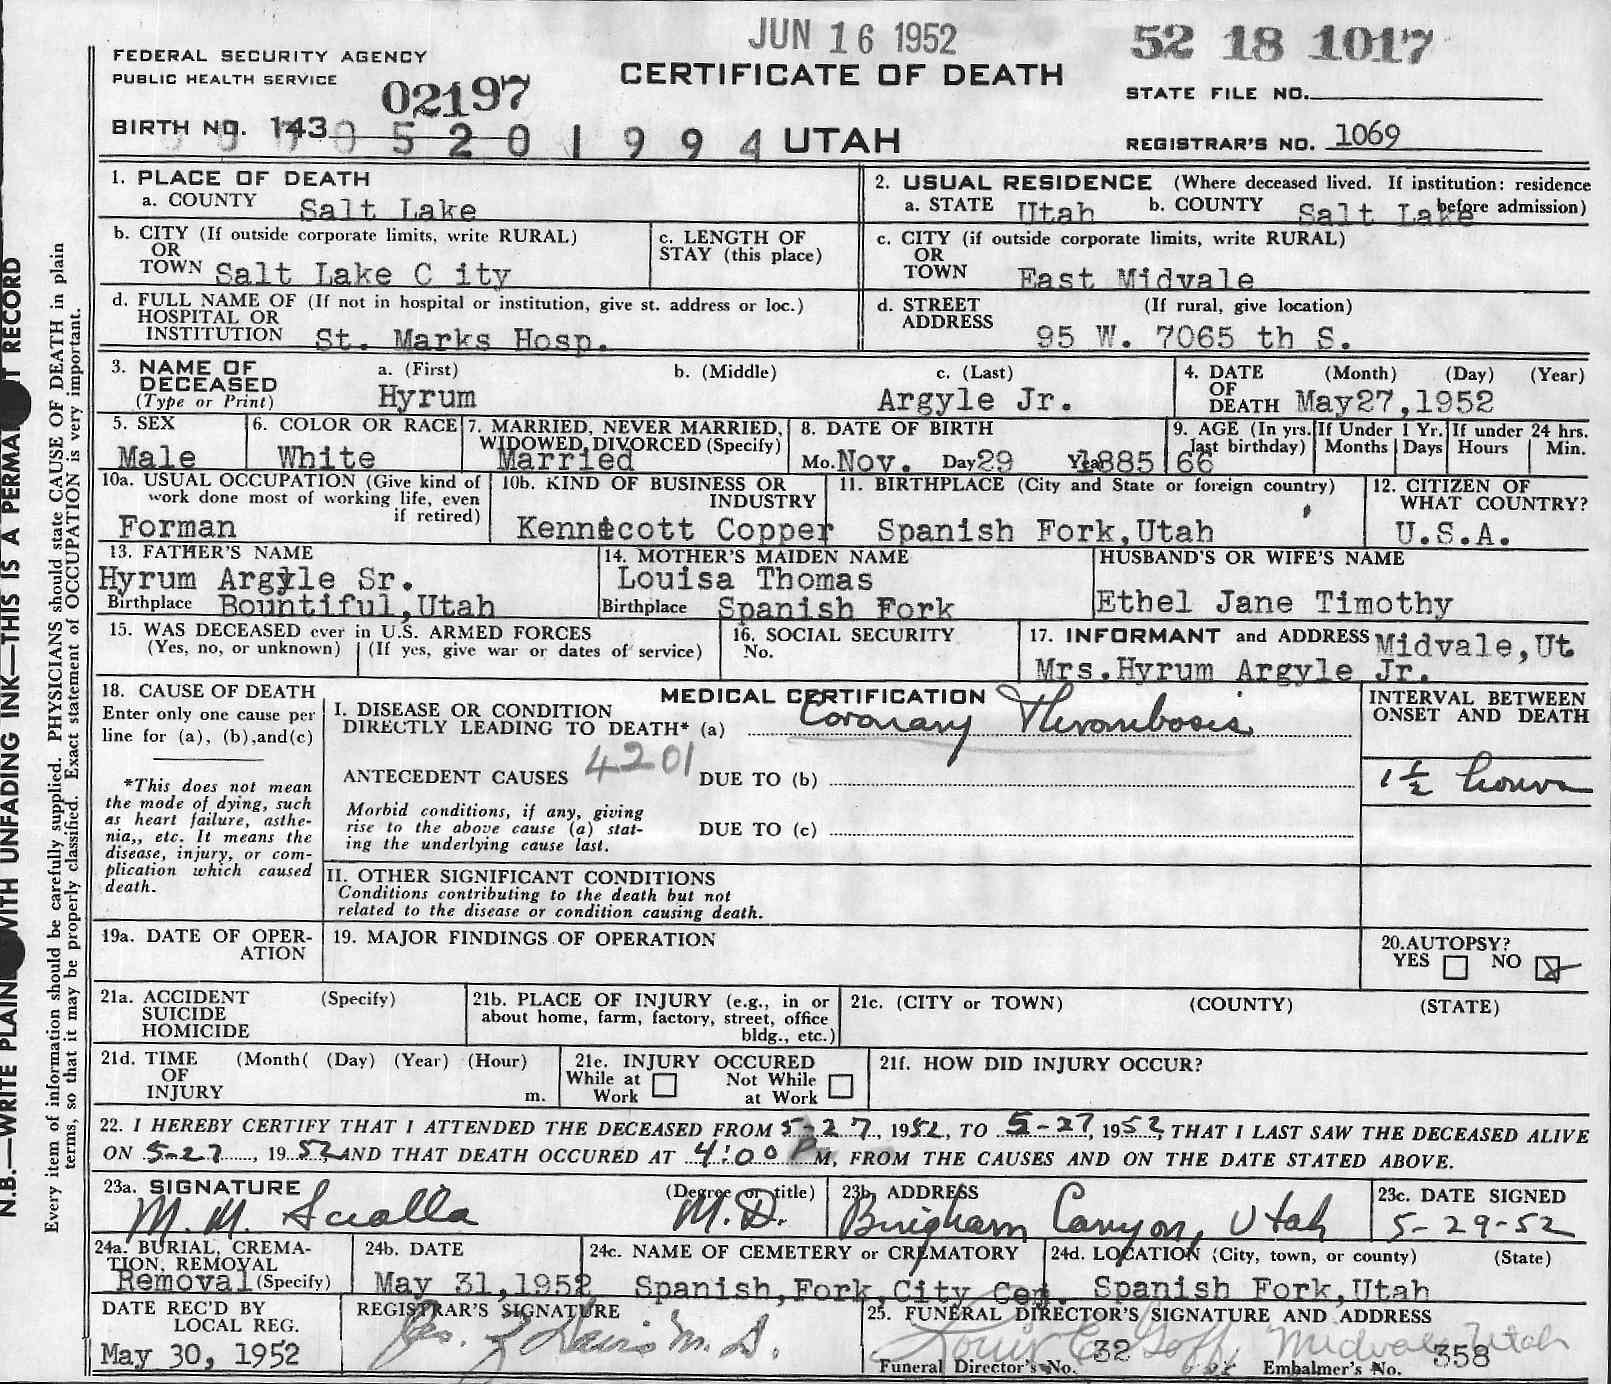 JUN 16 1952
52 18 1017
FEDERAL SECURITY AGENCY
PUBLIC HEALTH SERVICE
02197
CERTIFICATE OF DEATH
STATE FILE NO.
BIRTH NO. 143 0 5 2 0 1 9 9 4 UTAH
REGISTRAR'S NO. 1069
1. PLACE OF DEATH
a. COUNTY Salt Lake
2. USUAL RESIDENCE (Where deceased lived. If institution: residence before admission)
a. STATE Utah b. COUNTY Salt Lake
b. CITY (If outside corporate limits, write RURAL)
OR
TOWN Salt Lake C ity
c. LENGTH OF
STAY (this place)
c. CITY (if outside corporate limits, write RURAL)
OR
TOWN East Midvale
d. FULL NAME OF (If not in hospital or institution, give st. address or loc.)
HOSPITAL OR
INSTITUTION St. Marks Hosp.
d. STREET (If rural, give location)
ADDRESS 95 W. 7065 th S.
3. NAME OF
DECEASED
(Type or Print)
a. (First) b. (Middle) c. (Last)
Hyrum Argyle Jr.
4. DATE (Month) (Day) (Year)
OF
DEATH May27,1952
5. SEX
Male
6. COLOR OR RACE
White
7. MARRIED, NEVER MARRIED,
WIDOWED, DIVORCED (Specify)
Married
8. DATE OF BIRTH
Mo. Nov. Day 29 Year 1885
9. AGE (In yrs. last birthday)
66
If Under 1 Yr.
Months Days
If under 24 hrs.
Hours Min.
10a. USUAL OCCUPATION (Give kind of
work done most of working life, even
if retired)
Forman
10b. KIND OF BUSINESS OR
INDUSTRY
Kennecott Copper
11. BIRTHPLACE (City and State or foreign country)
Spanish Fork,Utah
12. CITIZEN OF
WHAT COUNTRY?
U.S.A.
13. FATHER'S NAME
Hyrum Argyle Sr.
Birthplace Bountiful,Utah
14. MOTHER'S MAIDEN NAME
Louisa Thomas
Birthplace Spanish Fork
HUSBAND'S OR WIFE'S NAME
Ethel Jane Timothy
15. WAS DECEASED ever in U.S. ARMED FORCES
(Yes, no, or unknown) (If yes, give war or dates of service)
16. SOCIAL SECURITY
No.
17. INFORMANT and ADDRESS Midvale,Ut
Mrs.Hyrum Argyle Jr.
18. CAUSE OF DEATH
Enter only one cause per
line for (a), (b),and(c)
*This does not mean
the mode of dying, such
as heart failure, asthe-
nia,, etc. It means the
disease, injury, or com-
plication which caused
death.
MEDICAL CERTIFICATION
I. DISEASE OR CONDITION
DIRECTLY LEADING TO DEATH* (a) Coronary Thrombosis
4201
ANTECEDENT CAUSES DUE TO (b)
Morbid conditions, if any, giving
rise to the above cause (a) stat-
ing the underlying cause last.
DUE TO (c)
INTERVAL BETWEEN
ONSET AND DEATH
1 1/2 hours
II. OTHER SIGNIFICANT CONDITIONS
Conditions contributing to the death but not
related to the disease or condition causing death.
19a. DATE OF OPER-
ATION
19. MAJOR FINDINGS OF OPERATION
20.AUTOPSY?
YES NO
21a. ACCIDENT (Specify)
SUICIDE
HOMICIDE
21b. PLACE OF INJURY (e.g., in or
about home, farm, factory, street, office
bldg., etc.)
21c. (CITY or TOWN) (COUNTY) (STATE)
21d. TIME (Month( (Day) (Year) (Hour)
OF
INJURY m.
21e. INJURY OCCURED
While at Work Not While at Work
21f. HOW DID INJURY OCCUR?
22. I HEREBY CERTIFY THAT I ATTENDED THE DECEASED FROM 5-27, 1952, TO 5-27, 1952, THAT I LAST SAW THE DECEASED ALIVE
ON 5-27, 1952 AND THAT DEATH OCCURED AT 4:00 P M, FROM THE CAUSES AND ON THE DATE STATED ABOVE.
23a. SIGNATURE (Degree or title)
M. M. Scialla M.D.
23b. ADDRESS
Bingham Canyon, Utah
23c. DATE SIGNED
5-29-52
24a. BURIAL, CREMA-
TION, REMOVAL
Removal (Specify)
24b. DATE
May 31,1952
24c. NAME OF CEMETERY or CREMATORY
Spanish,Fork,City Cem.
24d. LOCATION (City, town, or county) (State)
Spanish Fork,Utah
DATE REC'D BY
LOCAL REG.
May 30, 1952
REGISTRAR'S SIGNATURE
Davis M.D.
25. FUNERAL DIRECTOR'S SIGNATURE AND ADDRESS
Louis C. Goff Midvale Utah
Funeral Director's No. 32 Embalmer's No. 358
N.B.—WRITE PLAIN WITH UNFADING INK—THIS IS A PERMA T RECORD
Every item of information should be carefully supplied. PHYSICIANS should state CAUSE OF DEATH in plain
terms, so that it may be properly classified. Exact statement of OCCUPATION is very important.